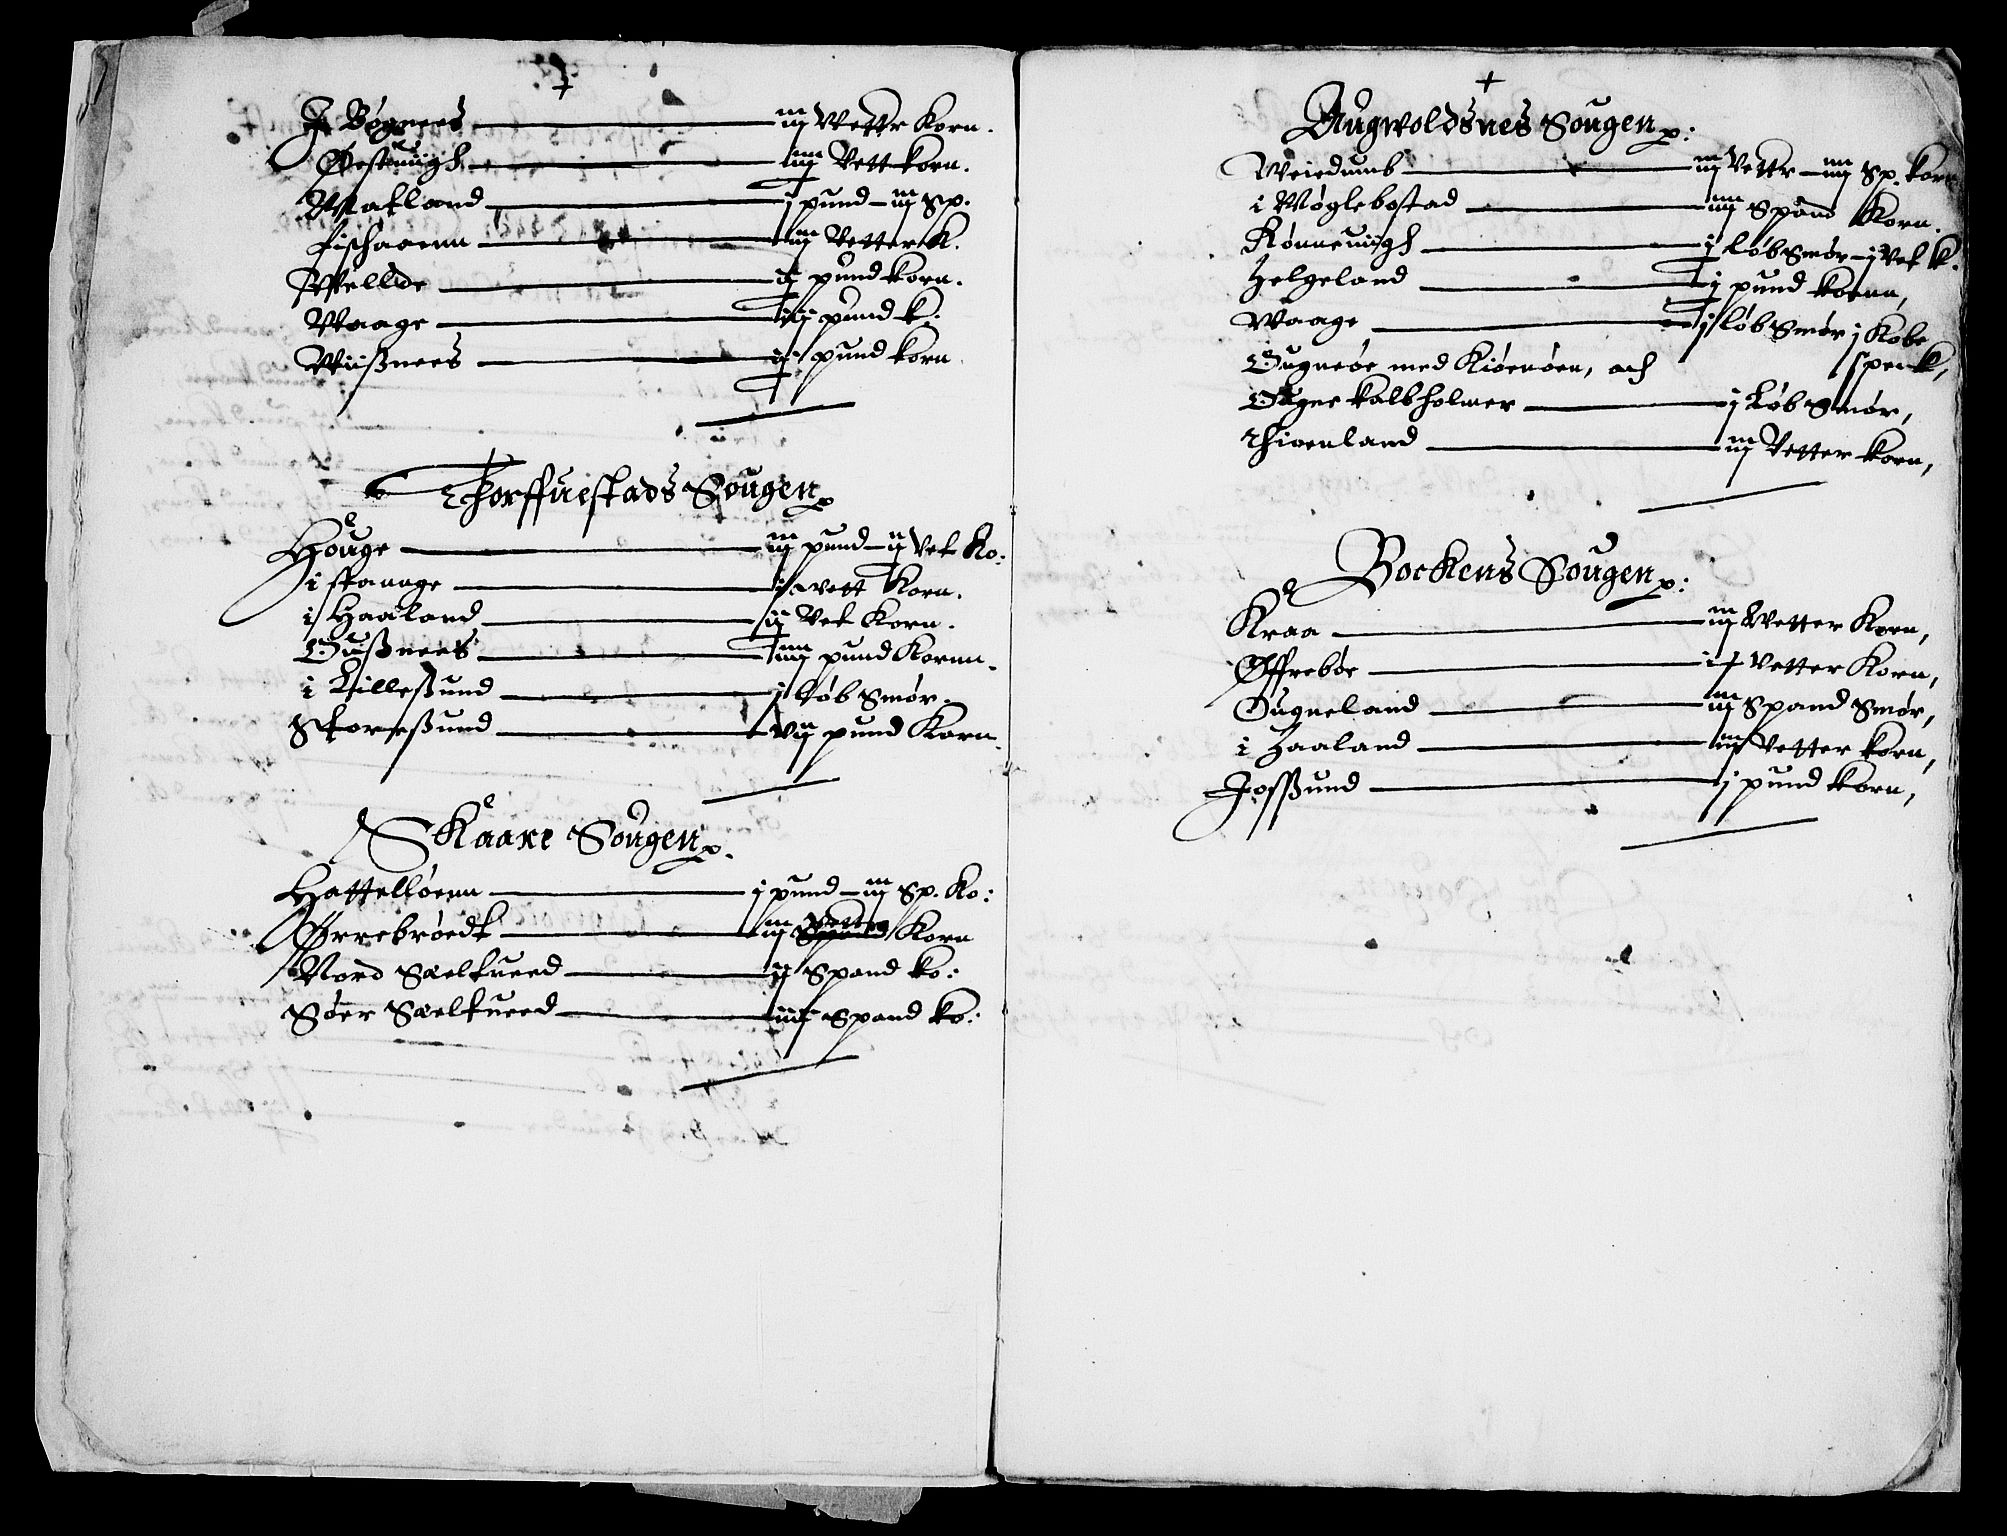 +
J Bøgnees — iij Vettr Korn.
Østeuiigh — iiij Vett korn.
Matland — j pund – iij sp.
Fischaaenn — iiij Vetter K.
Mellde — ij pund korn.
Waage — iij pund k.
Wiißnees — ij pund korn
Thorffuestads Sougen p
Houge — iij pund – ij Vet Ko:
i stannge — j vett Korn.
i Haaland — ij Vet Korn.
Gußnees — iiij pund Kornn.
i Lilleßund — j løb Smør.
Storeßund — vij pund Korn.
Skaare Sougen p.
Hatteløenn — j pund – iij Sp. Ko:
Ørrebrødt — iij Vetter Korn
Nord Sælkueed — ij Spand ko:
Søer Sælkueed — iiij Spand ko:
+
Augwoldsnes Sougen p:
Weiedumb — iij Vettr – iiij Sp. korn
i Møglebostad — iiij Spand Korn.
Kønneuiigh — j løb Smør – j Vet k.
Helgeland — j pund kornn,
Waage — j løb Smør j Kobe
speck,
Gugneøe med Kiøenøen, och
Gugne kalbholmer — j Løb Smør,
Thioenland — iij Vetter korn,
Bockens Sougen p:
Kraa — iij Wetter Korn,
Øffrebøe — Vetter Korn,
Gugneland — iij Spand Smør,
i Haaland — Vetter korn,
Josßund — j pund korn,